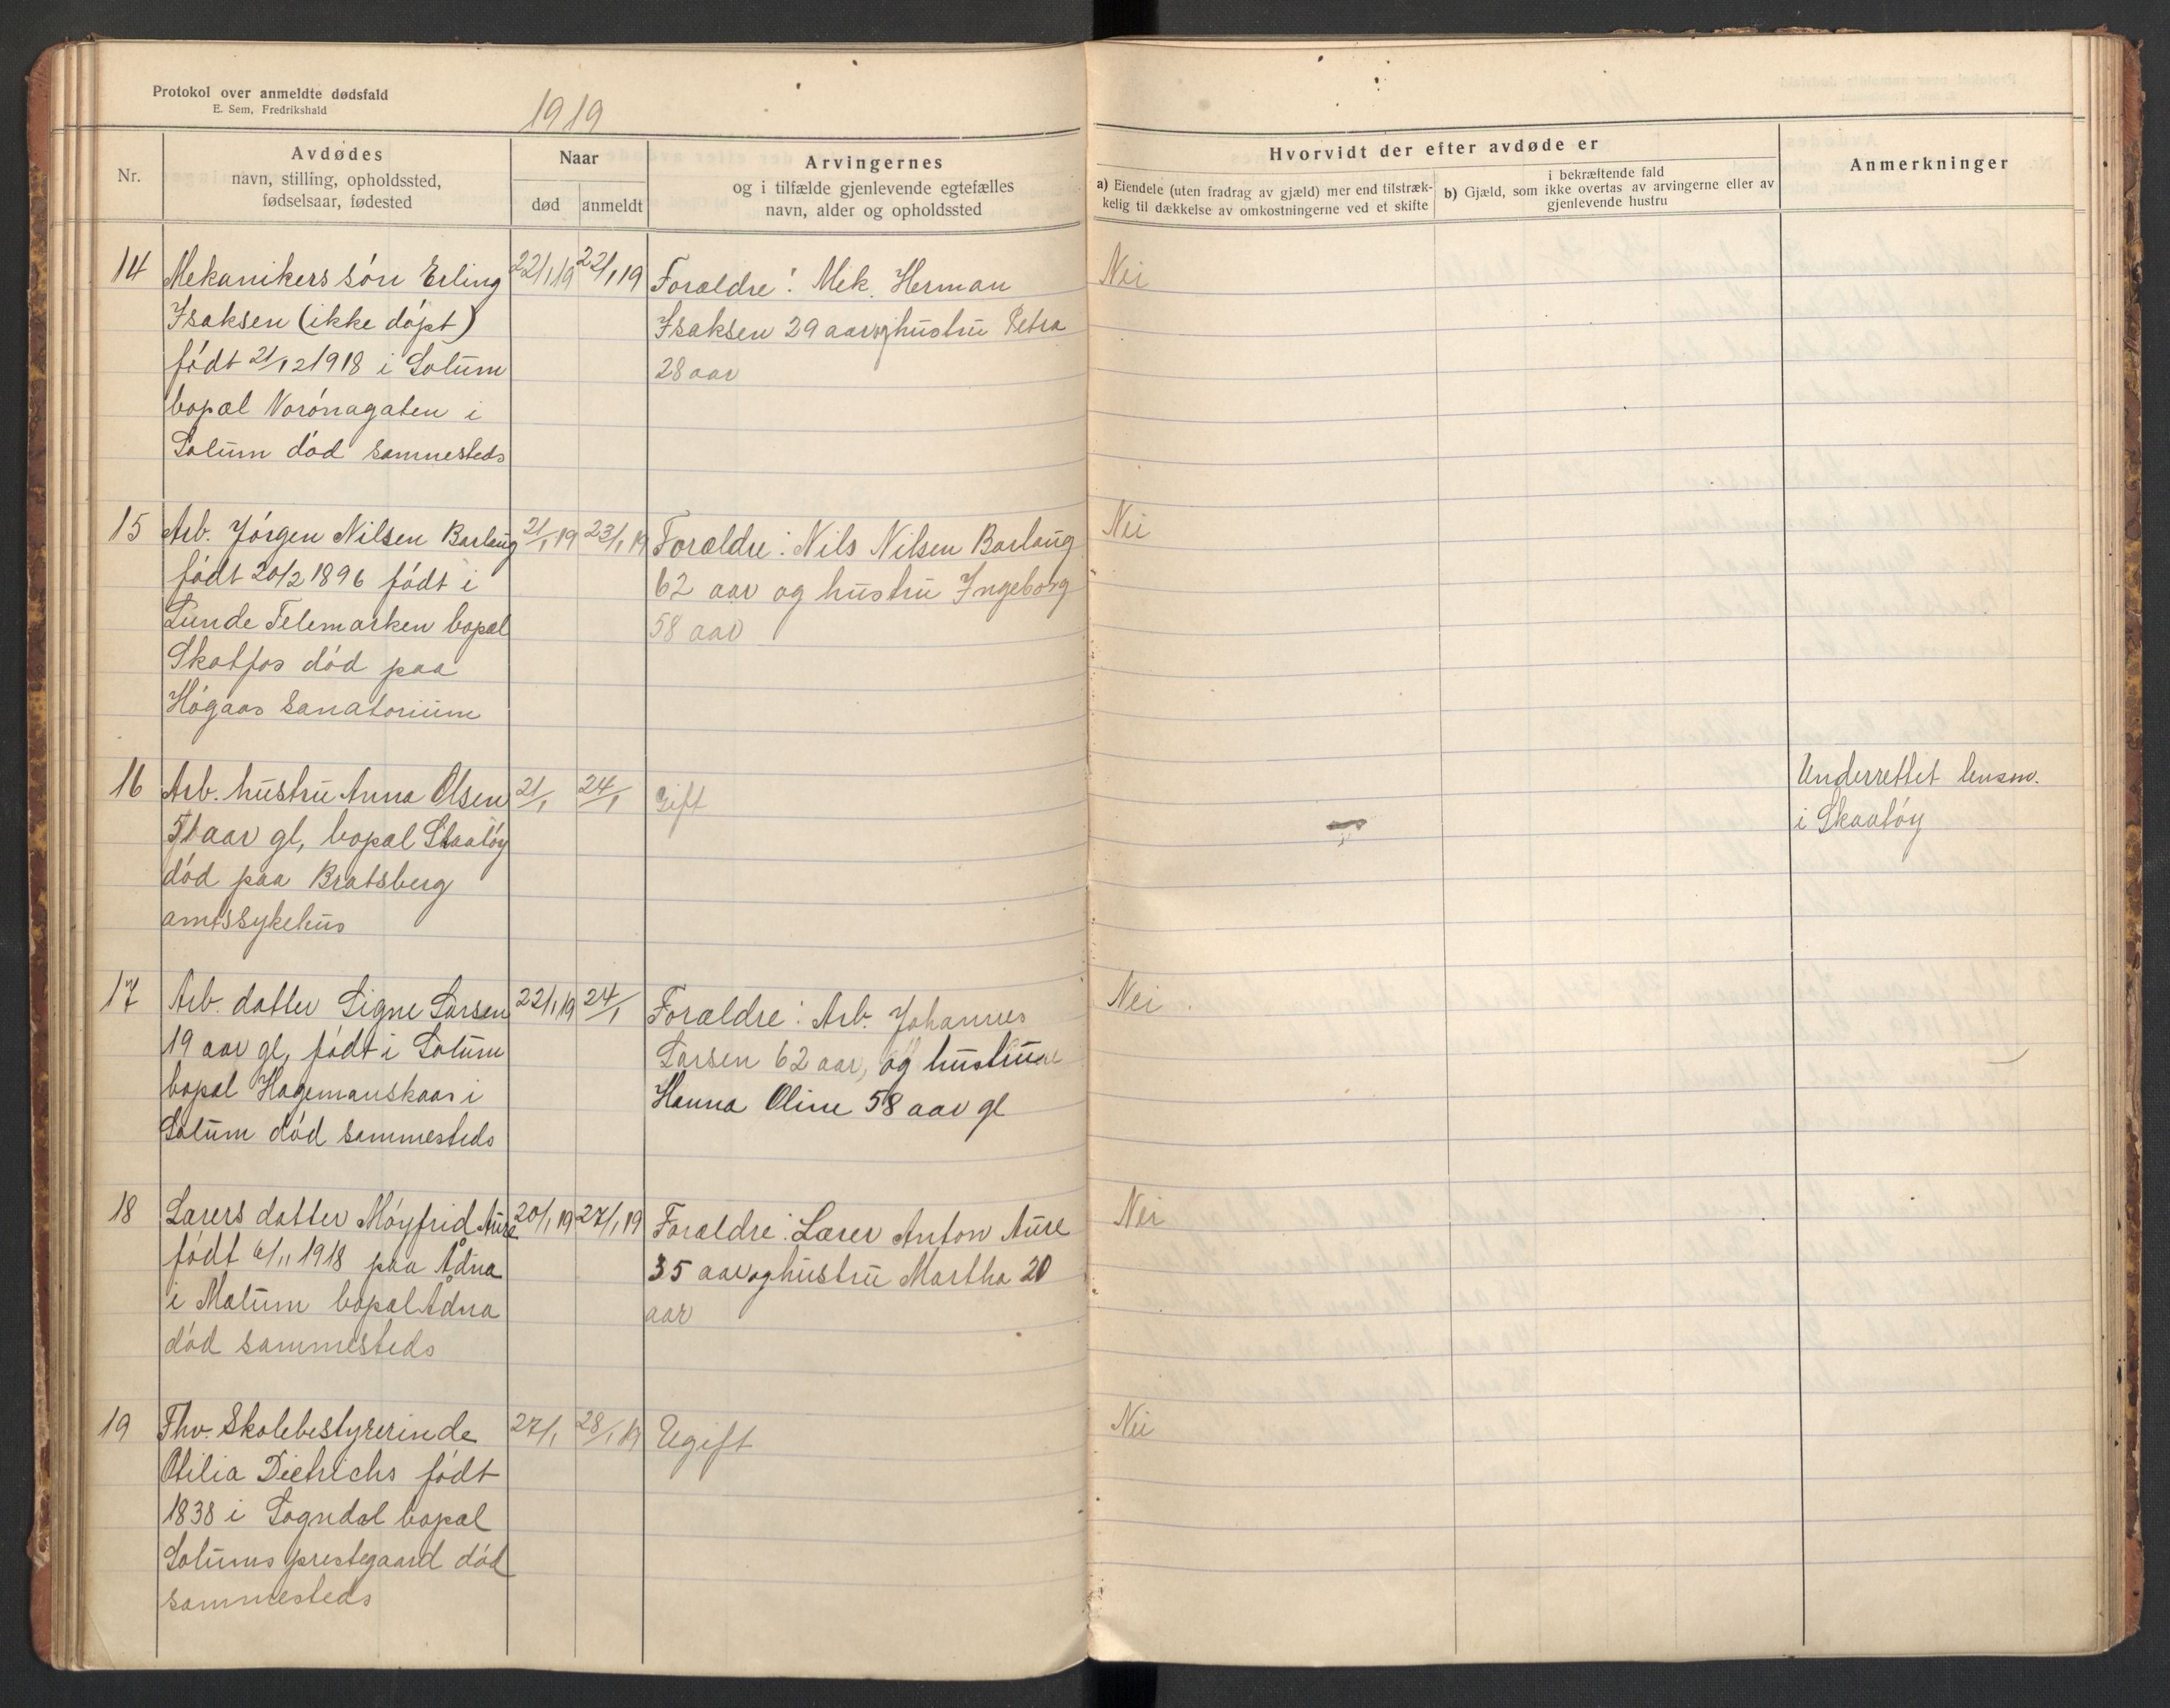 Protokol over anmeldte dødsfald
E. Sem, Fredrikshald
1919
Nr.
Avdødes
navn, stilling, opholdssted,
fødselsaar, fødested
Naar
død
anmeldt
Arvingernes
og i tilfælde gjenlevende egtefælles
navn, alder og opholdssted
Hvorvidt der efter avdøde er
a) Eiendele (uten fradrag av gjæld) mer end tilstræk-
kelig til dækkelse av omkostningerne ved et skifte
i bekræftende fald
b) Gjæld, som ikke overtas av arvingerne eller av
gjenlevende hustru
Anmerkninger
14
Mekanikers søn Erling
Isaksen (ikke døpt)
født 21/12 1918 i Solum
bopæl Norønagaten i
Solum død sammesteds
22/1 19
22/1 19
Forældre: Mek. Herman
Isaksen 29 aar og hustru Petra
28 aar
Nei
15
Arb. Jørgen Nilsen Barlaug
født 20/2 1896 født i
Lunde Telemarken bopæl
Skotfos død paa
Høgaas Sanatorium
21/1 19
23/1 19
Forældre: Nils Nilsen Barlaug
62 aar og hustru Ingeborg
58 aar
Nei
16
Arb. hustru Anna Olsen
aar gl, bopæl Skaatøy
død paa Bratsberg
amtssykehus
21/1
24/1
Gift
Underrettet lensm.
i Skaatøy
17
Arb. datter Signe Larsen
19 aar gl, født i Solum
bopæl Hagemanskaas i
Solum død sammesteds
22/1 19
24/1
Forældre: Arb. Johannes
Larsen 62 aar, og hustru
Hanna Oline 58 aar gl
Nei
18
Lærers datter Møyfrid Aure
født 6/11 1918 paa Ådna
i Mælum bopæl Ådna
død sammesteds
20/1 19
27/1 19
Forældre: Lærer Anton Aure
35 aar og hustru Martha 20
aar
Nei
19
Fhv. Skolebestyrerinde
Otilia Dietrichs født
1838 i Sogndal bopæl
Solums prestegaard død
sammesteds
27/1
28/1 19
Ugift
Nei